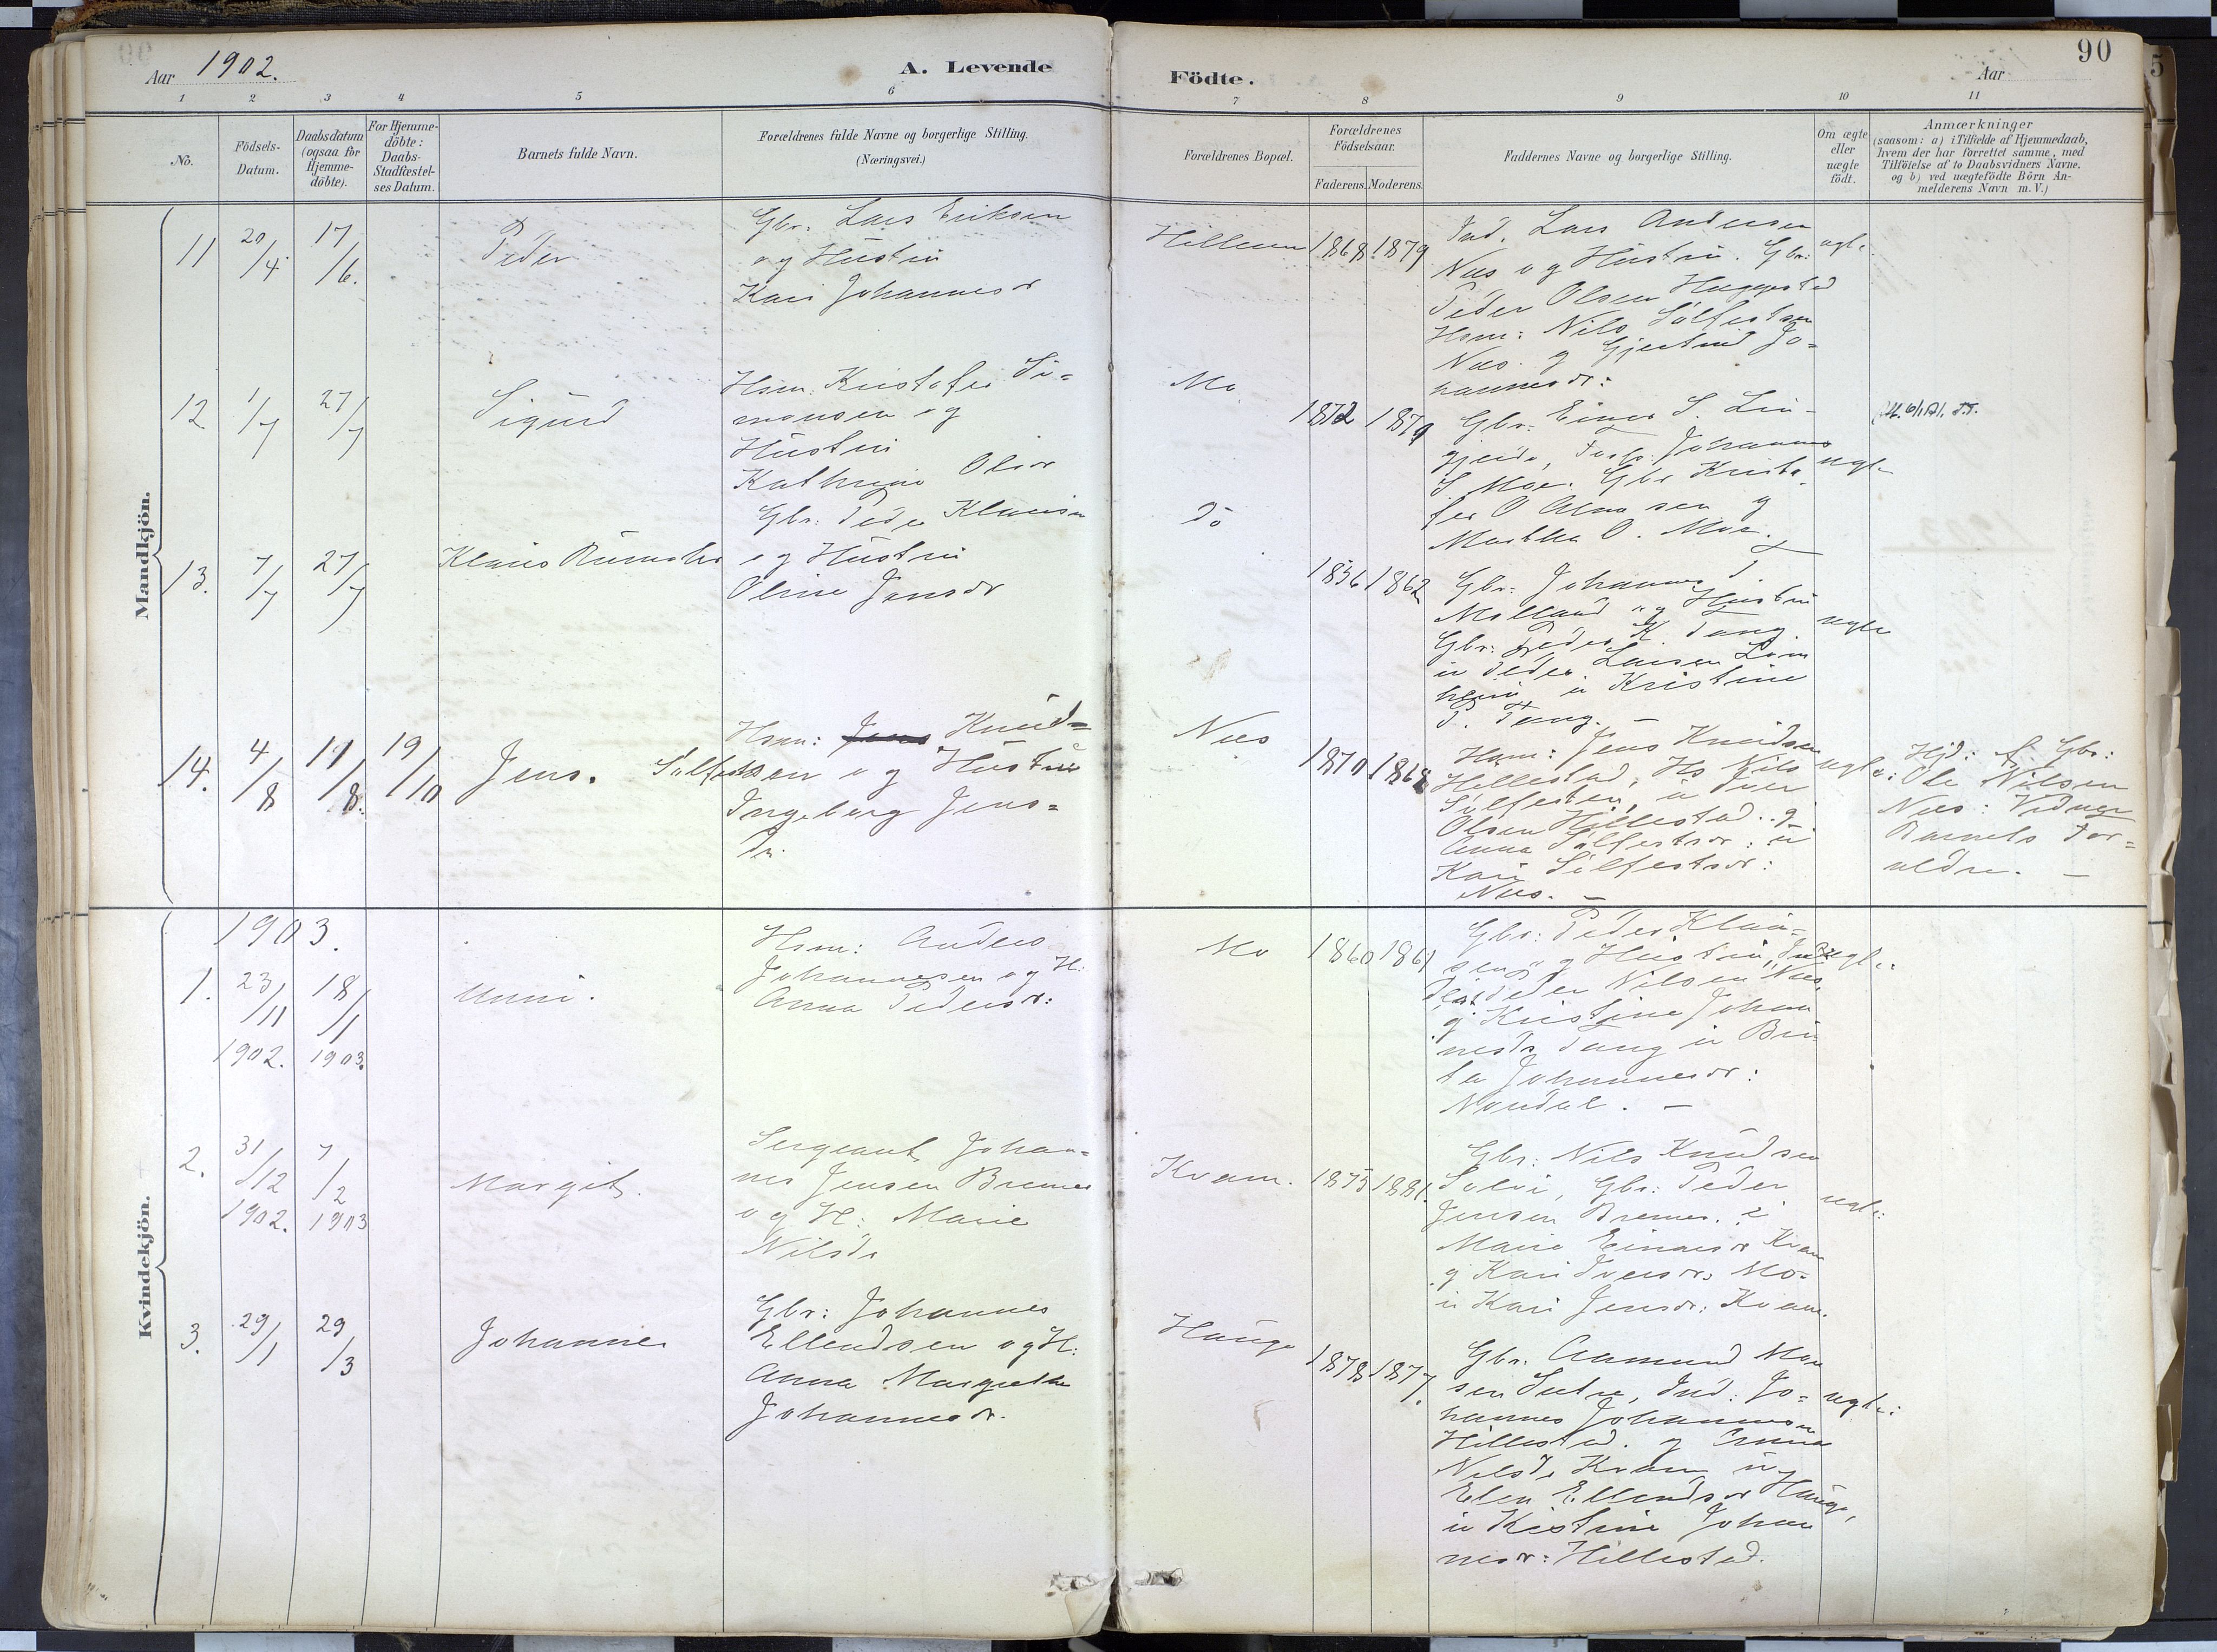 Aar 1902.
A. Levende
Födte.
Aar
90
1 2 3 4 5 6 7 8 9 10 11
No.
Födsels-
Datum.
Daabsdatum
(ogsaa for
Hjemme-
döbte).
For Hjemme-
döbte:
Daabs-
Stadfæstel-
ses Datum.
Barnets fulde Navn.
Forældrenes fulde Navne og borgerlige Stilling.
(Næringsvei.)
Forældrenes Bopæl.
Forældrenes
Födselsaar.
Faderens.
Moderens.
Faddernes Navne og borgerlige Stilling.
Om ægte
eller
uægte
födt.
Anmærkninger
(saasom: a) i Tilfælde af Hjemmedaab,
hvem der har forrettet samme, med
Tilföielse af to Daabsvidners Navne.
og b) ved uægtefödte Börn An-
melderens Navn m. V.)
Mandkjön.
11 20/4 17/6. Peder
Gbr. Lars Eriksen
og Hustru
Kari Johannesdr
1868. 1879
Ind. Lars Andersen
Nees og Hustru. Gbr:
Peder Olsen
Hsm: Nils Sølfestsen
Nees. og Gjertrud Jo=
hannesdr:
ægte
12 1/7 27/7 Sigurd
Hsm. Kristofer Si=
monsen og
Hustru
Kathrine Olsdr
Mo
1872 1879
Gbr. Einar S. Lin-
gjerde, Johannes
S. Moe. Gbr Kristo
fer O
Martha O. Moe.
ægte
13. 7/7 27/7 Klaus
Gbr: Peder Klausen
og Hustru
Oline Jensdr
Do
1856 1862
Gbr: Johannes J
Molland og Hustru
Gbr: Peder K. Tang.
u Peder Larsen
u Kristine
P. Tang. -
ægte
14. 4/8 17/8. 19/10 Jens.
Hsm: Jens Knud=
Sølfestsen og Hustru
Ingeborg Jens=
dr.
Nees
1870 1868
Hsm: Jens Knudsen
Hillestad, Hs Nils
Sølfestsen, u Iver
Olsen Hillestad. g
Anna Sølfestsdr: u
Kari Sølfestsdr:
Nees. -
ægte:
Hjd: f. Gbr:
Ole Nilsen
Nees: Vidner
Barnets For=
ældre. -
Kvindekjön.
1903.
1. 23/11 1902. 18/1 1903. Unni.
Hsm: Anders
Johannesen og H:
Anna Pedersdr:
Mo
1860 1861
Gbr: Peder Klau-
sen g Hustru,
Peder Nilsen Nees,
g Kristine Johan
nesdr Tang u Bri
ta Johannesdr:
Nondal. -
ægte:
2. 31/12 1902. 7/2 1903 Margit.
Sergeant Johan=
nes Jensen Bremer
og H: Marie
Nilsdr
Kvam.
1875 1881.
Gbr: Nils Knudsen
Solvi, Gbr: Peder
Jensen Bremer.
Marie Einarsdr Kvam
g Kari Iversdr, Mo-
u Kari Jensdr: Kvam.
ægte:
3. 29/1 29/3 Johanne
Gbr: Johannes
Ellendsen og H:
Anna Margrethe
Johannesdr.
Hauge
1878 1877.
Gbr. Aamund Mon
sen Sætre, Ind: Jo=
hannes Johannesen
Hillestad. g Anna
Nilsdr Kvam u
Elen Ellendsdr Hauge,
u Kristine Johan
nesdr: Hillestad.
ægte: